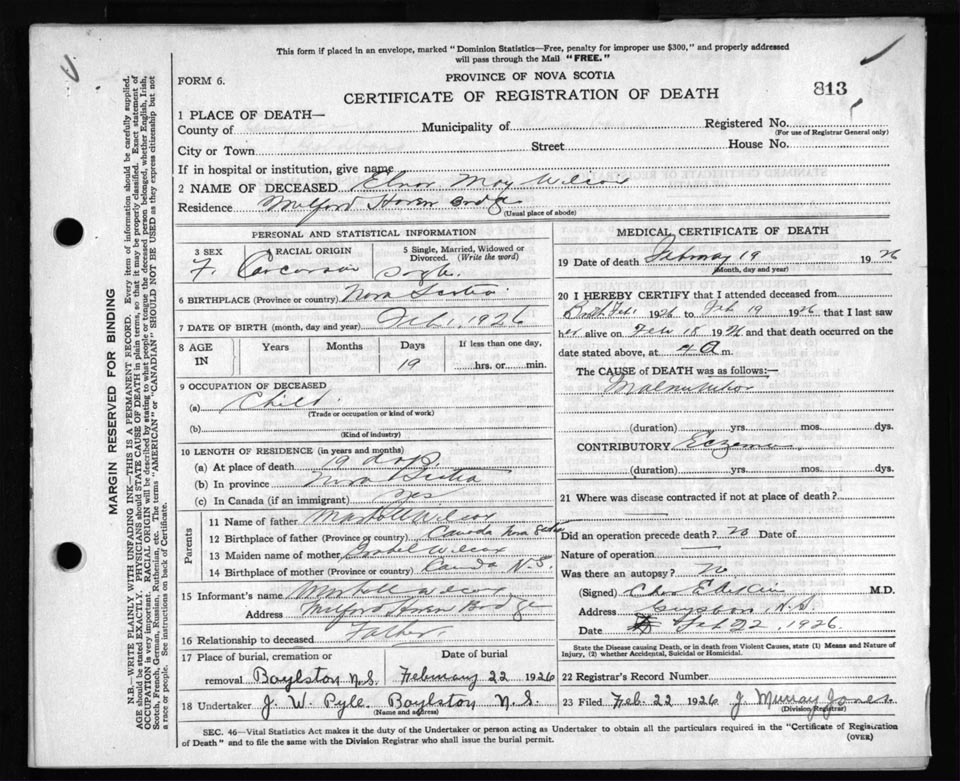 This form if placed in an envelope, marked "Dominion Statistics—Free, penalty for improper use $300," and properly addressed
will pass through the Mail "FREE."
FORM 6.
PROVINCE OF NOVA SCOTIA
813
CERTIFICATE OF REGISTRATION OF DEATH
1 PLACE OF DEATH—
County of
Municipality of
Registered No.
(For use of Registrar General only)
City or Town
Street
House No.
If in hospital or institution, give name
2 NAME OF DECEASED Elnor May Wilcox
Residence Milford Haven Bridge
(Usual place of abode)
PERSONAL AND STATISTICAL INFORMATION
3 SEX
F.
RACIAL ORIGIN
5 Single, Married, Widowed or Divorced. (Write the word)
Single
6 BIRTHPLACE (Province or country) Nova Scotia
7 DATE OF BIRTH (month, day and year) Feb 1, 1926
8 AGE IN
Years
Months
Days
19
If less than one day,
hrs. or min.
9 OCCUPATION OF DECEASED
(a) Child
(Trade or occupation or kind of work)
(b)
(Kind of industry)
10 LENGTH OF RESIDENCE (in years and months)
(a) At place of death 19 days
(b) In province Nova Scotia
(c) In Canada (if an immigrant) yes
Parents
11 Name of father Marshall Wilcox
12 Birthplace of father (Province or country) Canada Nova Scotia
13 Maiden name of mother Wilcox
14 Birthplace of mother (Province or country) Canada N.S.
15 Informant's name Marshall Wilcox
Address Milford Haven Bridge
16 Relationship to deceased Father.
17 Place of burial, cremation or removal Boylston N.S.
Date of burial
February 22 1926
18 Undertaker J. W. Pyle. Boylston N. S.
(Name and address)
MEDICAL CERTIFICATE OF DEATH
19 Date of death February 19 1926
(Month, day and year)
20 I HEREBY CERTIFY that I attended deceased from
Birth Feb 1 1926 to Feb 19 1926 that I last saw
her alive on Feb 18 1926 and that death occurred on the
date stated above, at 4 a m.
The CAUSE of DEATH was as follows:—
Malnutrition
(duration) yrs. mos. dys.
CONTRIBUTORY Eczema
(duration) yrs. mos. dys.
21 Where was disease contracted if not at place of death?
Did an operation precede death? no Date of
Nature of operation
Was there an autopsy? No
(Signed) Chas E M.D.
Address Guysboro, N.S.
Date Feb 22, 1926.
State the Disease causing Death, or in death from Violent Causes, state (1) Means and Nature of
Injury, (2) whether Accidental, Suicidal or Homicidal.
22 Registrar's Record Number
23 Filed Feb. 22 1926 J. Murray Jones.
(Division Registrar)
SEC. 46—Vital Statistics Act makes it the duty of the Undertaker or person acting as Undertaker to obtain all the particulars required in the "Certificate of Registration
of Death" and to file the same with the Division Registrar who shall issue the burial permit.
(OVER)
MARGIN RESERVED FOR BINDING
N.B.—WRITE PLAINLY WITH UNFADING INK—THIS IS A PERMANENT RECORD. Every item of information should be carefully supplied.
AGE should be stated EXACTLY. PHYSICIANS should STATE CAUSE OF DEATH in plain terms, so that it may be properly classified. Exact statement of
OCCUPATION is very important. RACIAL ORIGIN will be described by stating to what people or tongue the deceased person belonged, whether English, Irish,
Scotch, French, German, Russian, Ruthenian, etc. The terms "AMERICAN" or "CANADIAN" SHOULD NOT BE USED as they express citizenship but not
a race or people. See instructions on back of Certificate.